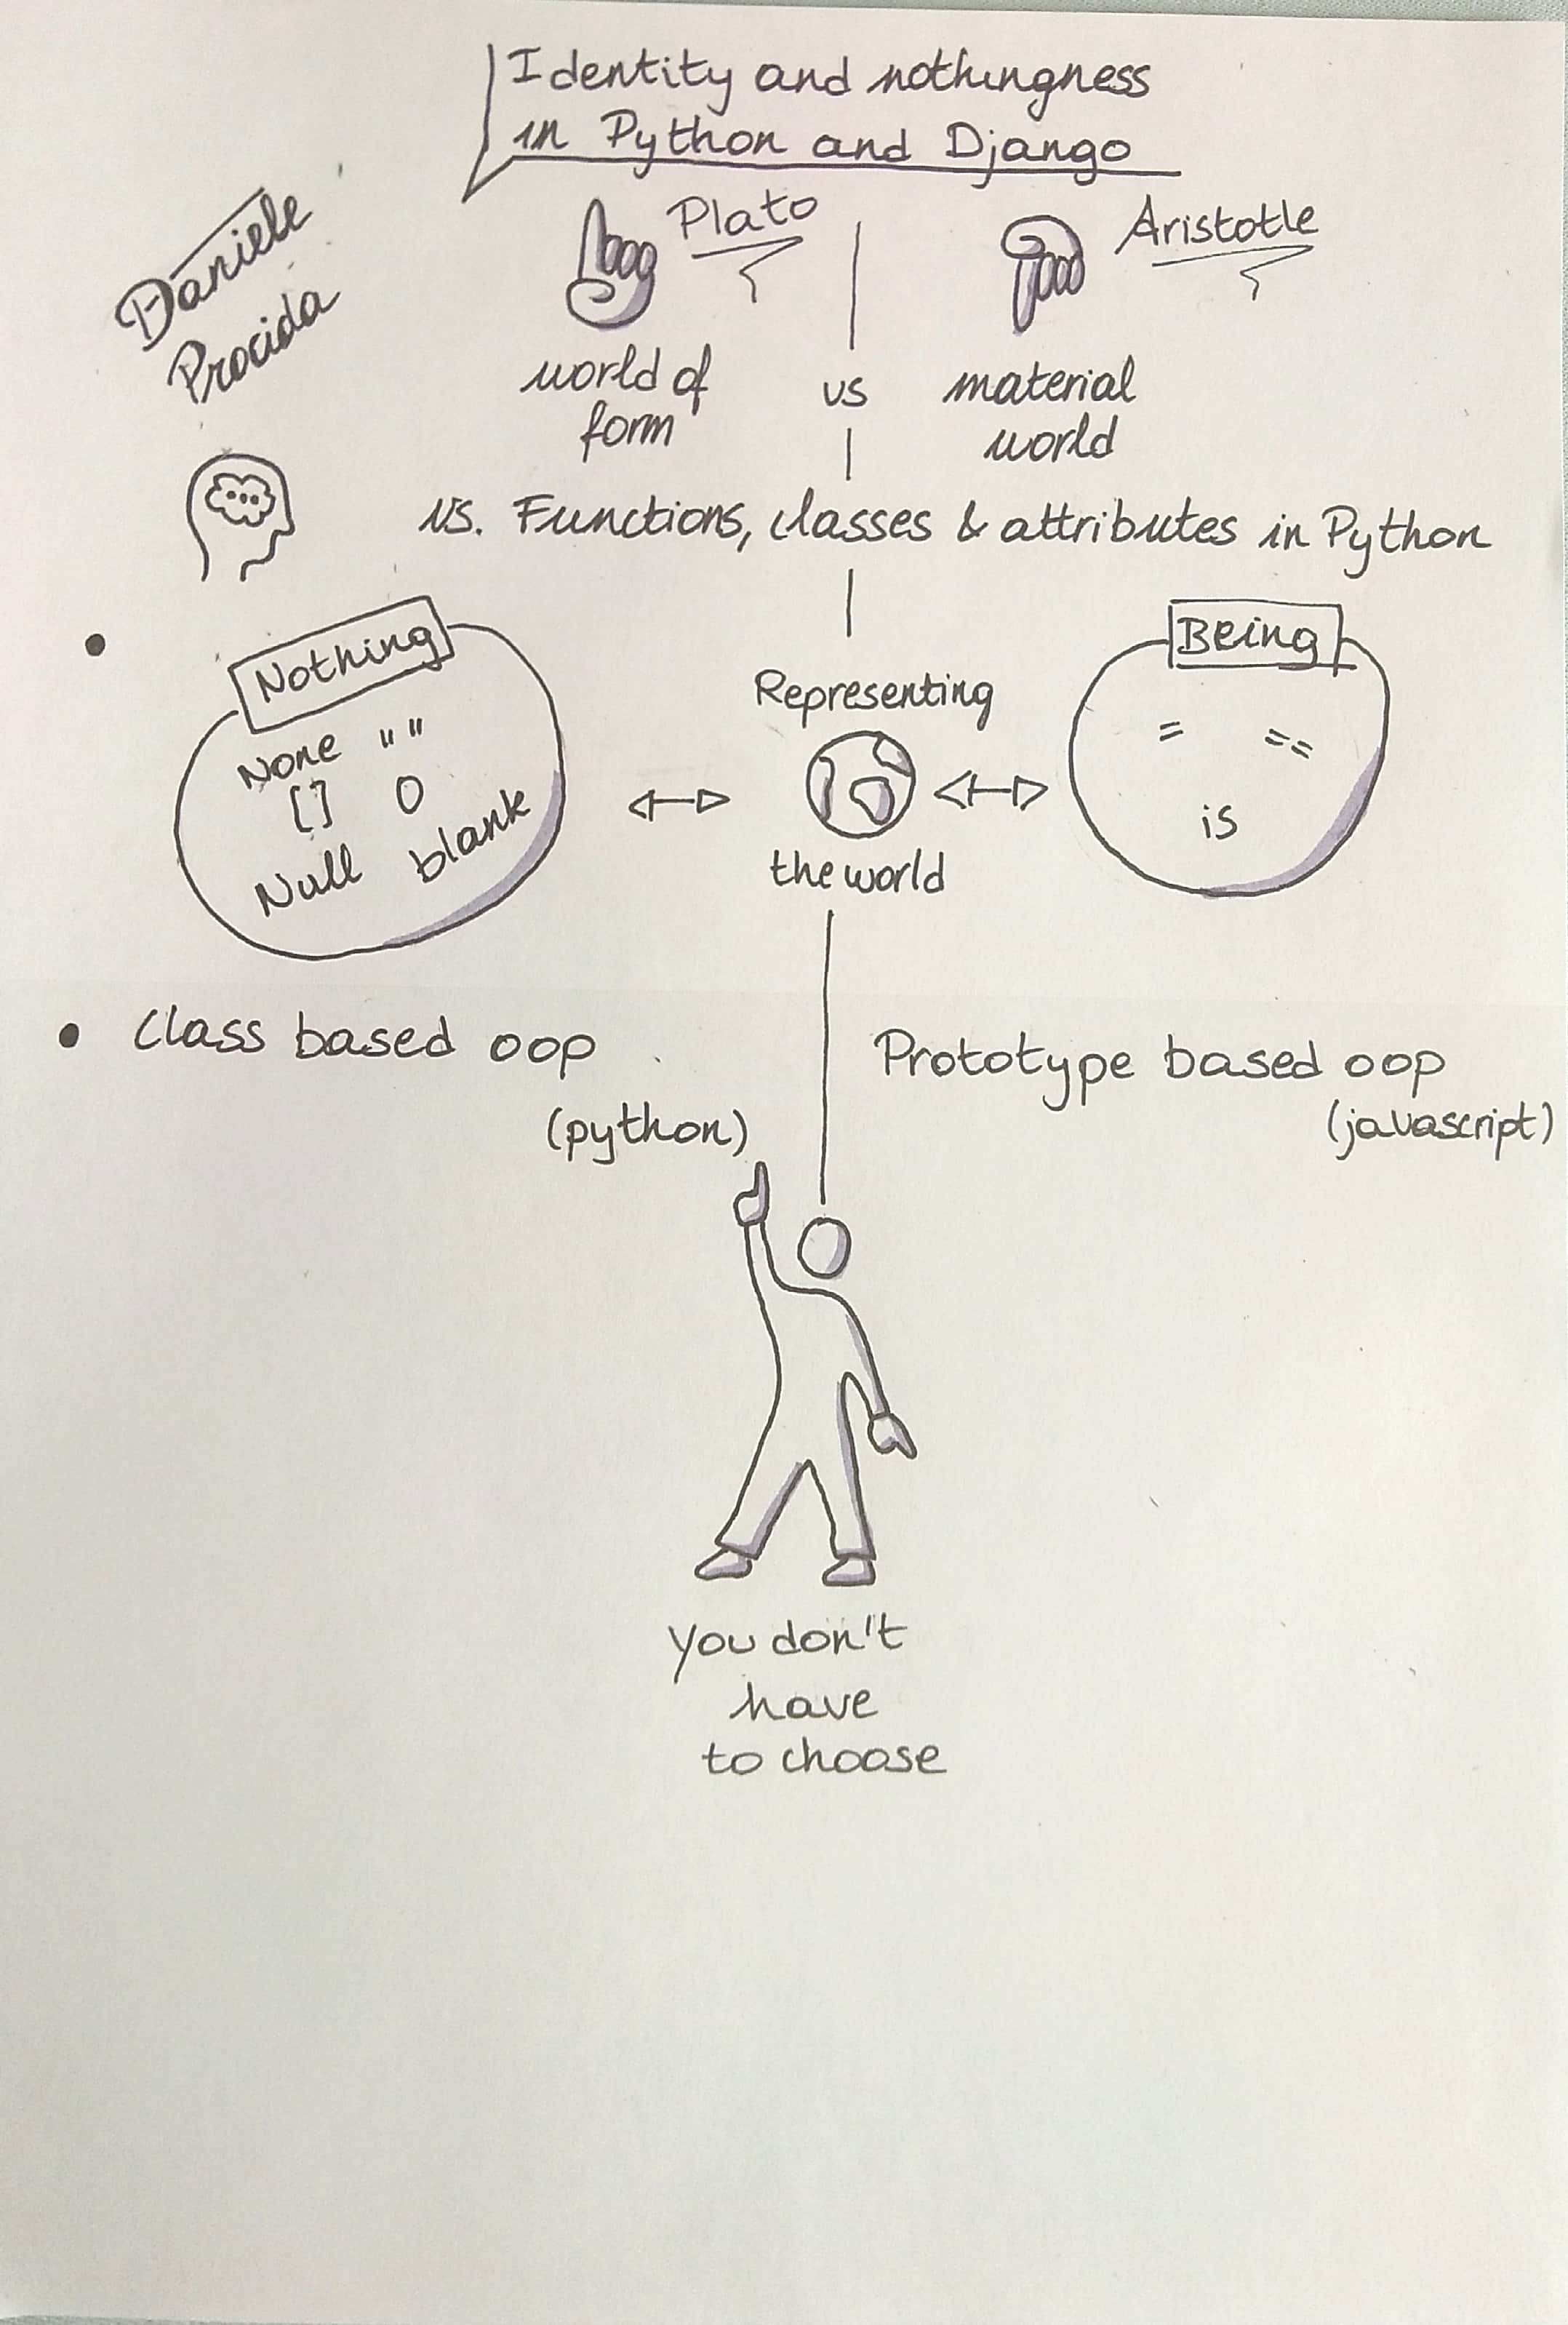 Identity and nothingness
in Python and Django
Daniele
Procida
Plato
Aristotle
world of
form
vs
material
world
vs. Functions, classes & attributes in Python
Nothing
None " "
[] 0
Null blank
Representing
the world
Being
= ==
is
• Class based oop
(python)
Prototype based oop
(javascript)
You don't
have
to choose